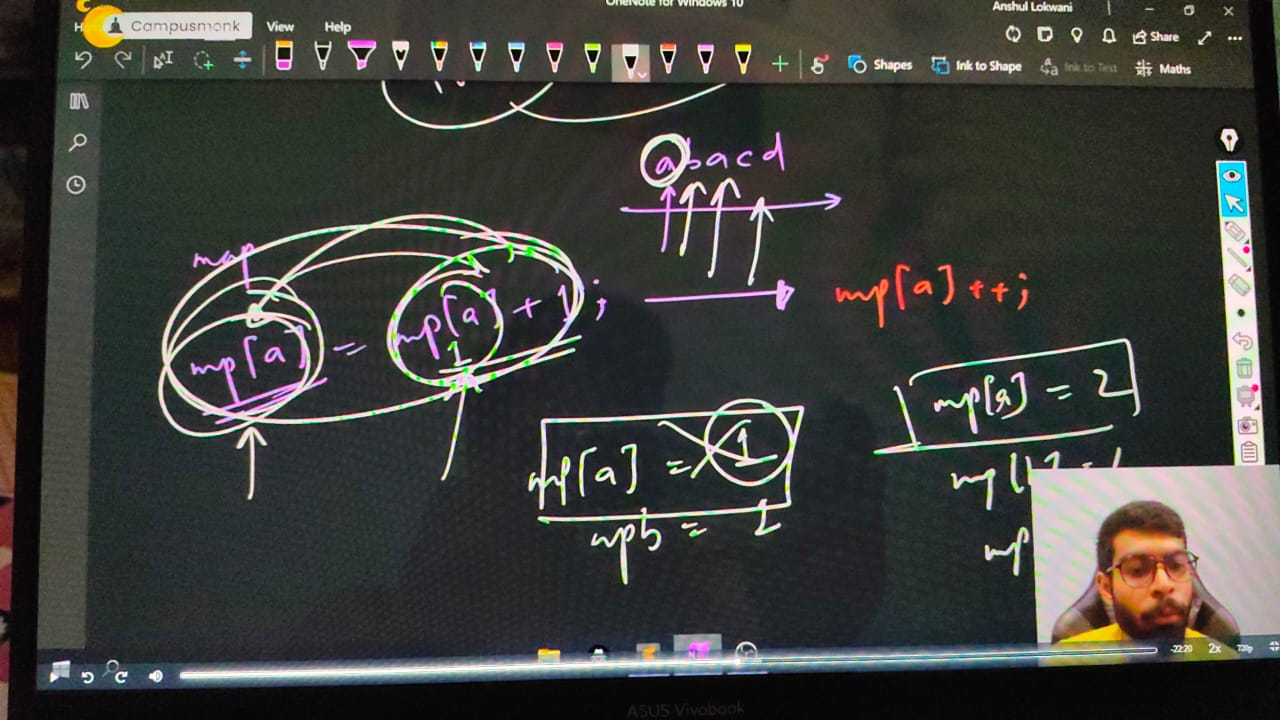 OneNote for Windows 10
Anshul Lokwani
Campusmonk
View Help
Share
Shapes
Ink to Shape
Ink to Text
Maths
abacd
map
mp[a] = mp[a] + 1 ;
1
mp[a]++;
mp[a] = 2
mp[a] = 1
mpb = 1
mp
-22:20 2x 720p
ASUS Vivobook